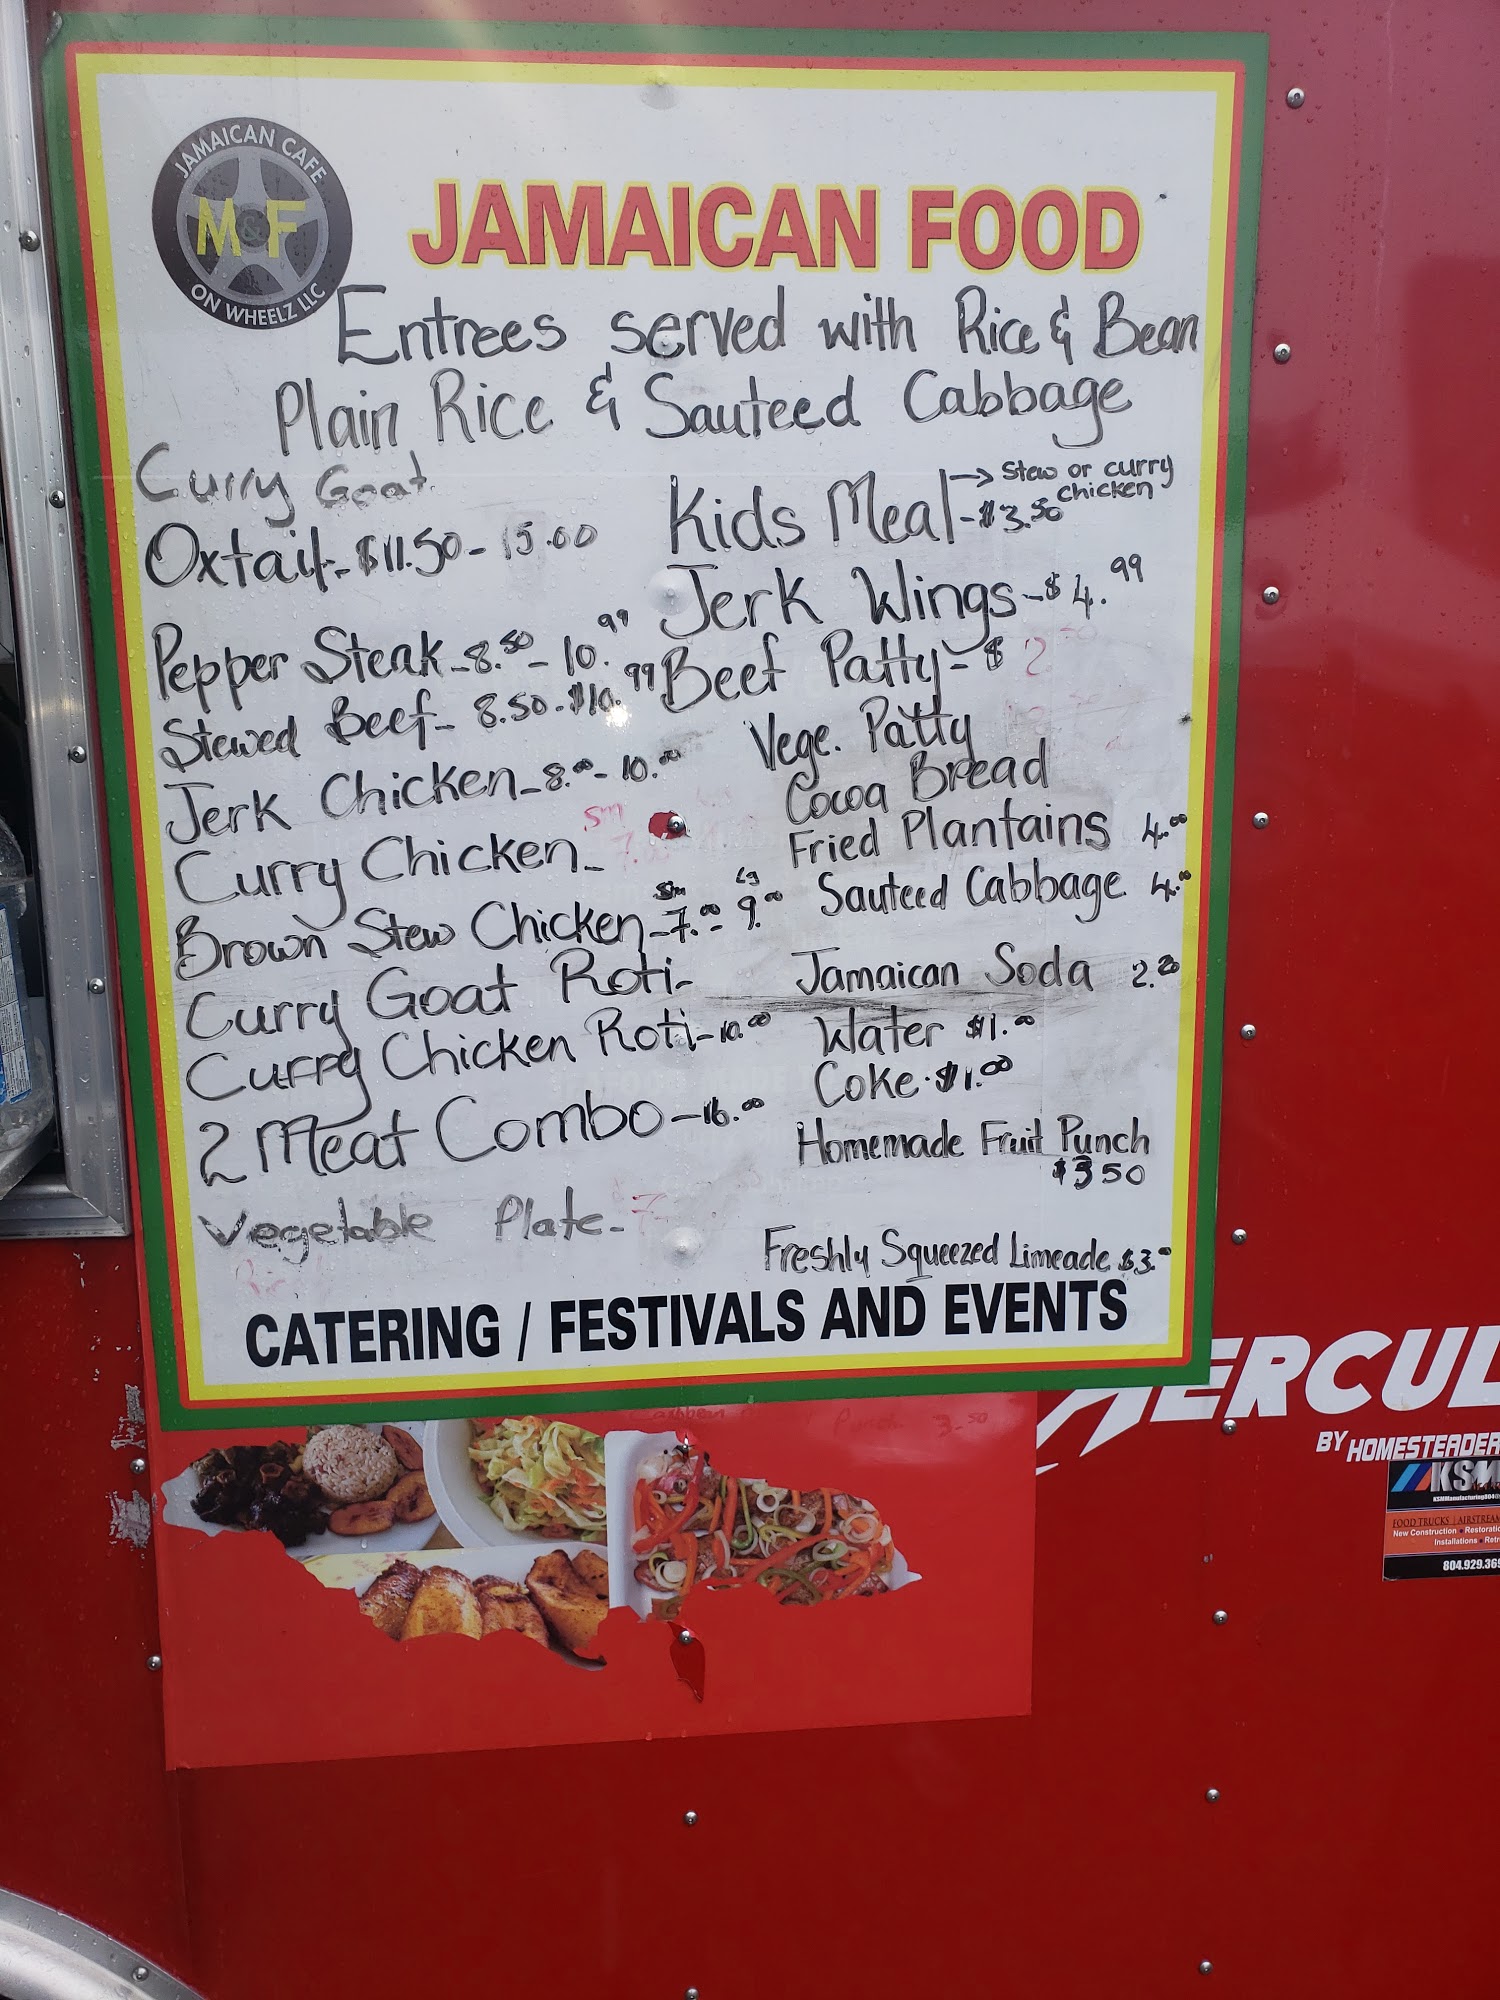 JAMAICAN CAFE
M&F
ON WHEELZ LLC
JAMAICAN FOOD
Entrees served with Rice & Bean
Plain Rice & Sauteed Cabbage
Curry Goat
Oxtail - $11.50 - 15.00
Pepper Steak - 8.50 - 10.99
Stewed Beef - 8.50 - $10.99
Jerk Chicken - 8.00 - 10.00
Curry Chicken - sm 7.00
Brown Stew Chicken - sm 7.00 - Lg 9.00
Curry Goat Roti -
Curry Chicken Roti - 10.00
2 Meat Combo - 16.00
Vegetable Plate - 7
Kids Meal - $3.50 → Stew or curry
chicken
Jerk Wings - $4.99
Beef Patty - $2.50
Vege. Patty
Cocoa Bread
Fried Plantains 4.00
Sauteed Cabbage 4.00
Jamaican Soda 2.20
Water $1.00
Coke · $1.00
Homemade Fruit Punch
$3.50
Freshly Squeezed Limeade $3.00
CATERING / FESTIVALS AND EVENTS
Punch 3.50
HERCUL
BY HOMESTEADER
KSM
FOOD TRUCKS | AIRSTREAM
New Construction • Restoratio
Installations • Retr
804.929.369